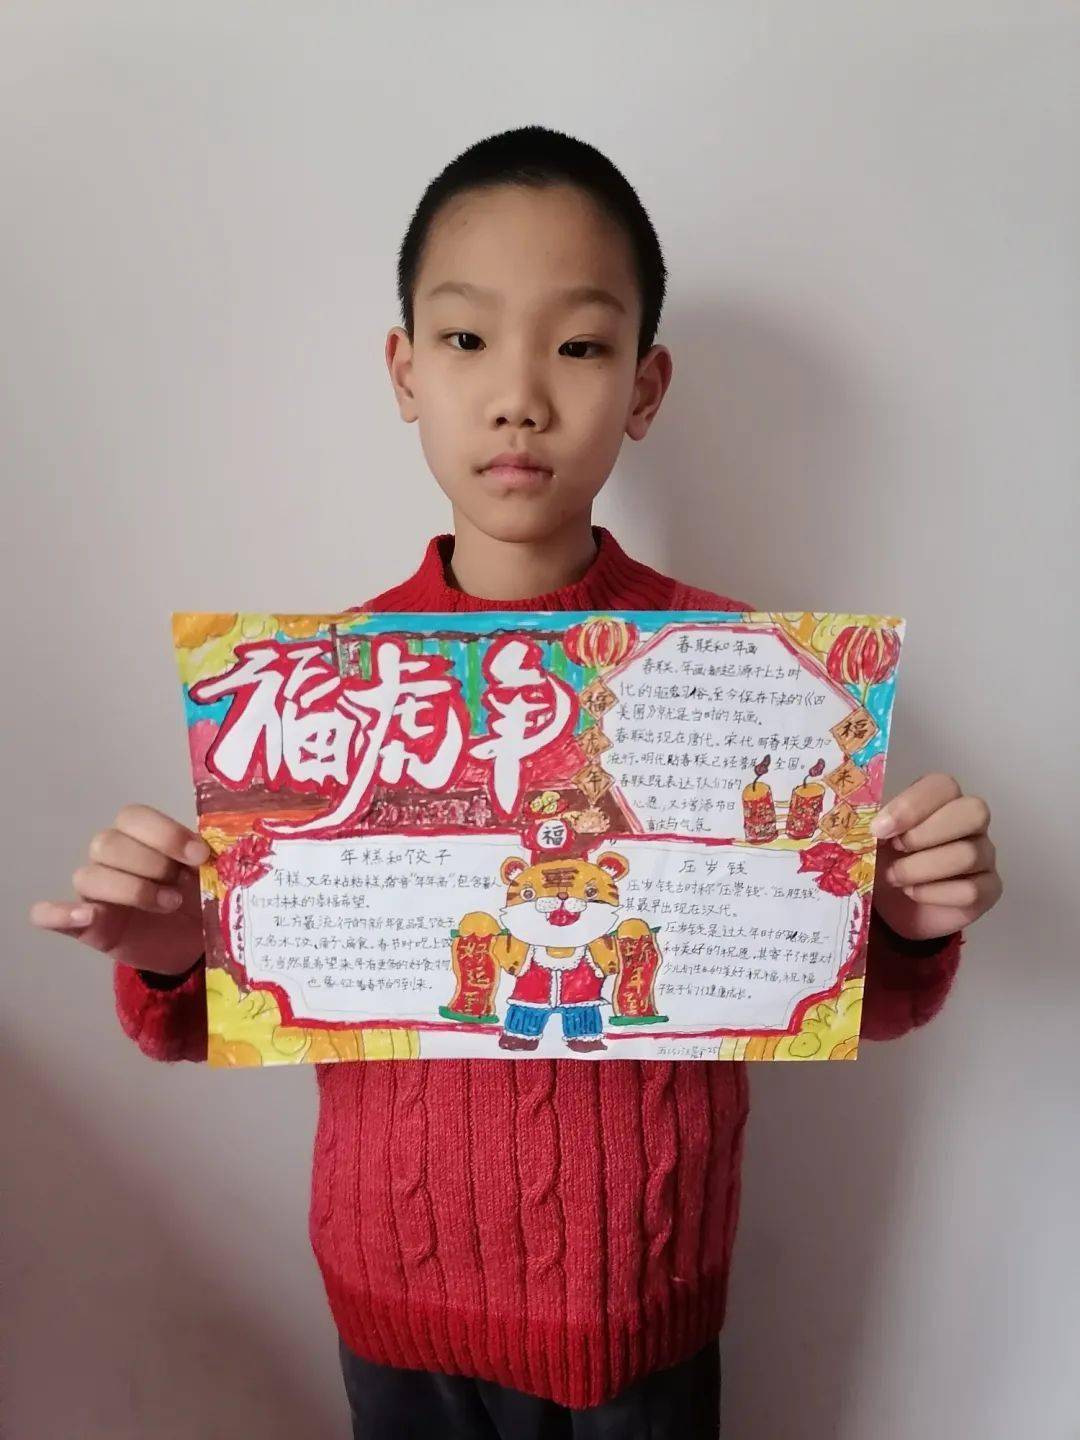 福虎年
春联和年画
春联、年画都起源于上古时
代的驱鬼习俗。至今保存下来的《四
美图》就是当时的年画。
春联出现在唐代。宋代时春联更加
流行。明代贴春联已经普及全国。
春联既表达了人们的
心愿,又增添节日
喜庆与气氛
福
虎
年
福
来
到
福
年糕和饺子
年糕,又名粘粘糕,谐音"年年高",包含着人
们对未来的幸福希望。
北方最流行的新年食品是饺子,
又名水饺、扁食。春节时吃上饺
子,当然是希望来年有更多的好食物,
也象征着春节的到来。
压岁钱
压岁钱古时称"压祟钱"、"压胜钱",
其最早出现在汉代。
压岁钱是过大年时的习俗是一
种美好的祝愿。其寄予
少儿们的美好祝福,祝福
孩子们健康成长。
好运到
新年到